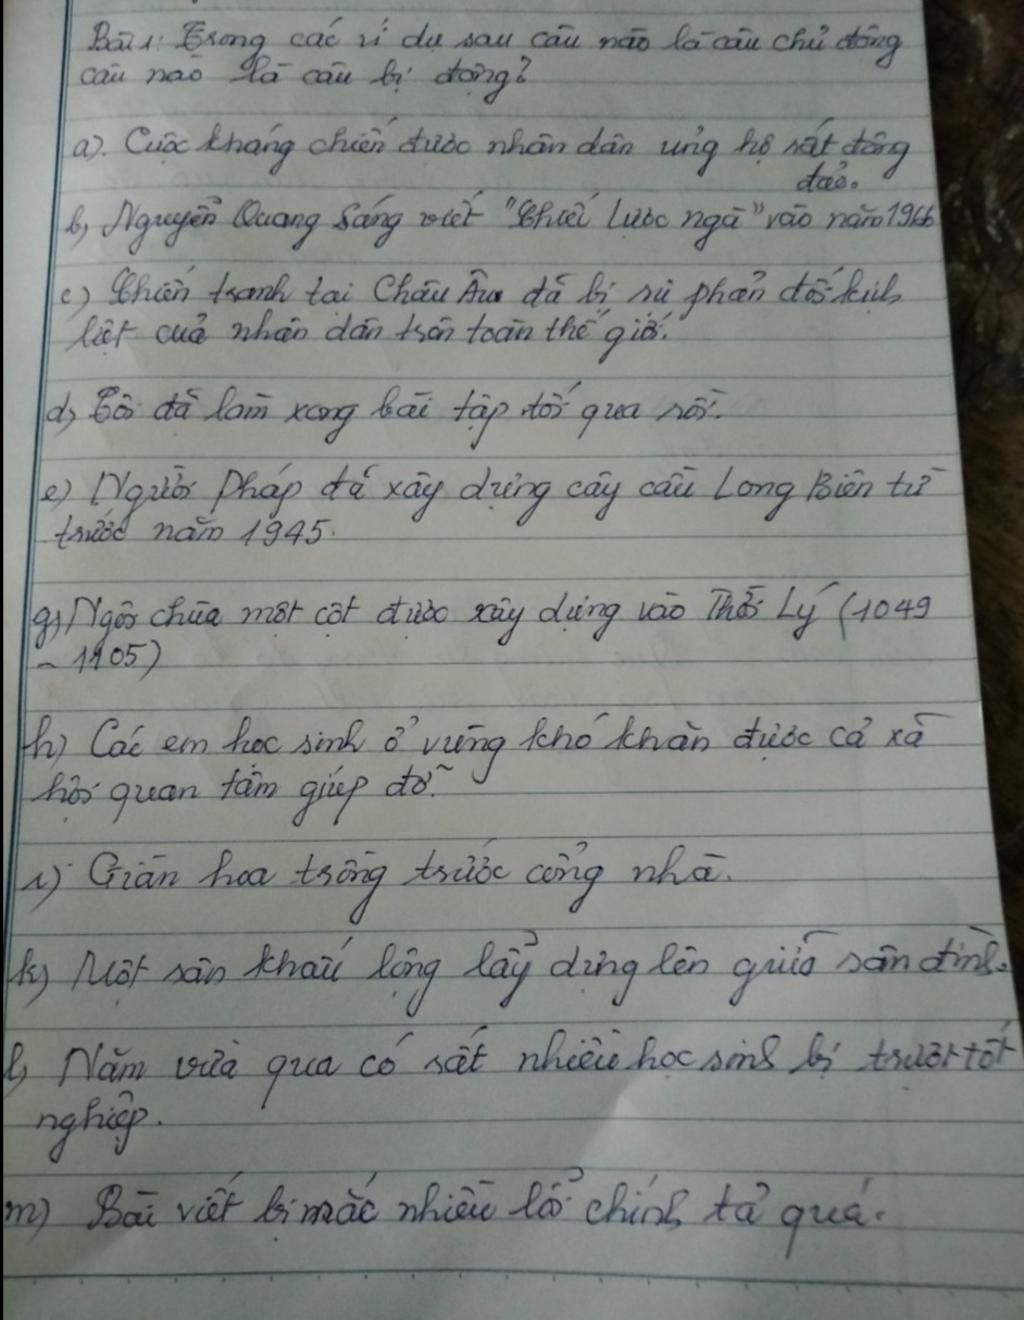 Bài 1: Trong các ví dụ sau câu nào là câu chủ động
câu nào là câu bị động?
a). Cuộc kháng chiến được nhân dân ủng hộ rất đông
đảo.
b) Nguyễn Quang Sáng viết "Chiếc lược ngà" vào năm 1966
c) Chiến tranh tại Châu Âu đã bị sự phản đối kịch
liệt của nhân dân trên toàn thế giới.
d) Tôi đã làm xong bài tập tối qua rồi.
e) Người Pháp đã xây dựng cây cầu Long Biên từ
trước năm 1945.
g) Ngôi chùa một cột được xây dựng vào Thời Lý (1049
- 1105)
h) Các em học sinh ở vùng khó khăn được cả xã
hội quan tâm giúp đỡ.
i) Giàn hoa trồng trước cổng nhà.
k) Một sân khấu lộng lẫy dựng lên giữa sân đình.
l) Năm vừa qua có rất nhiều học sinh bị trượt tốt
nghiệp.
m) Bài viết bị mắc nhiều lỗi chính tả quá.